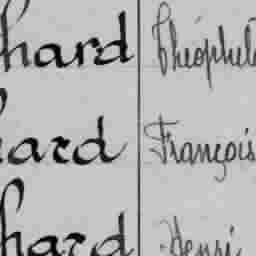 hard Théophile
hard François
hard Henri